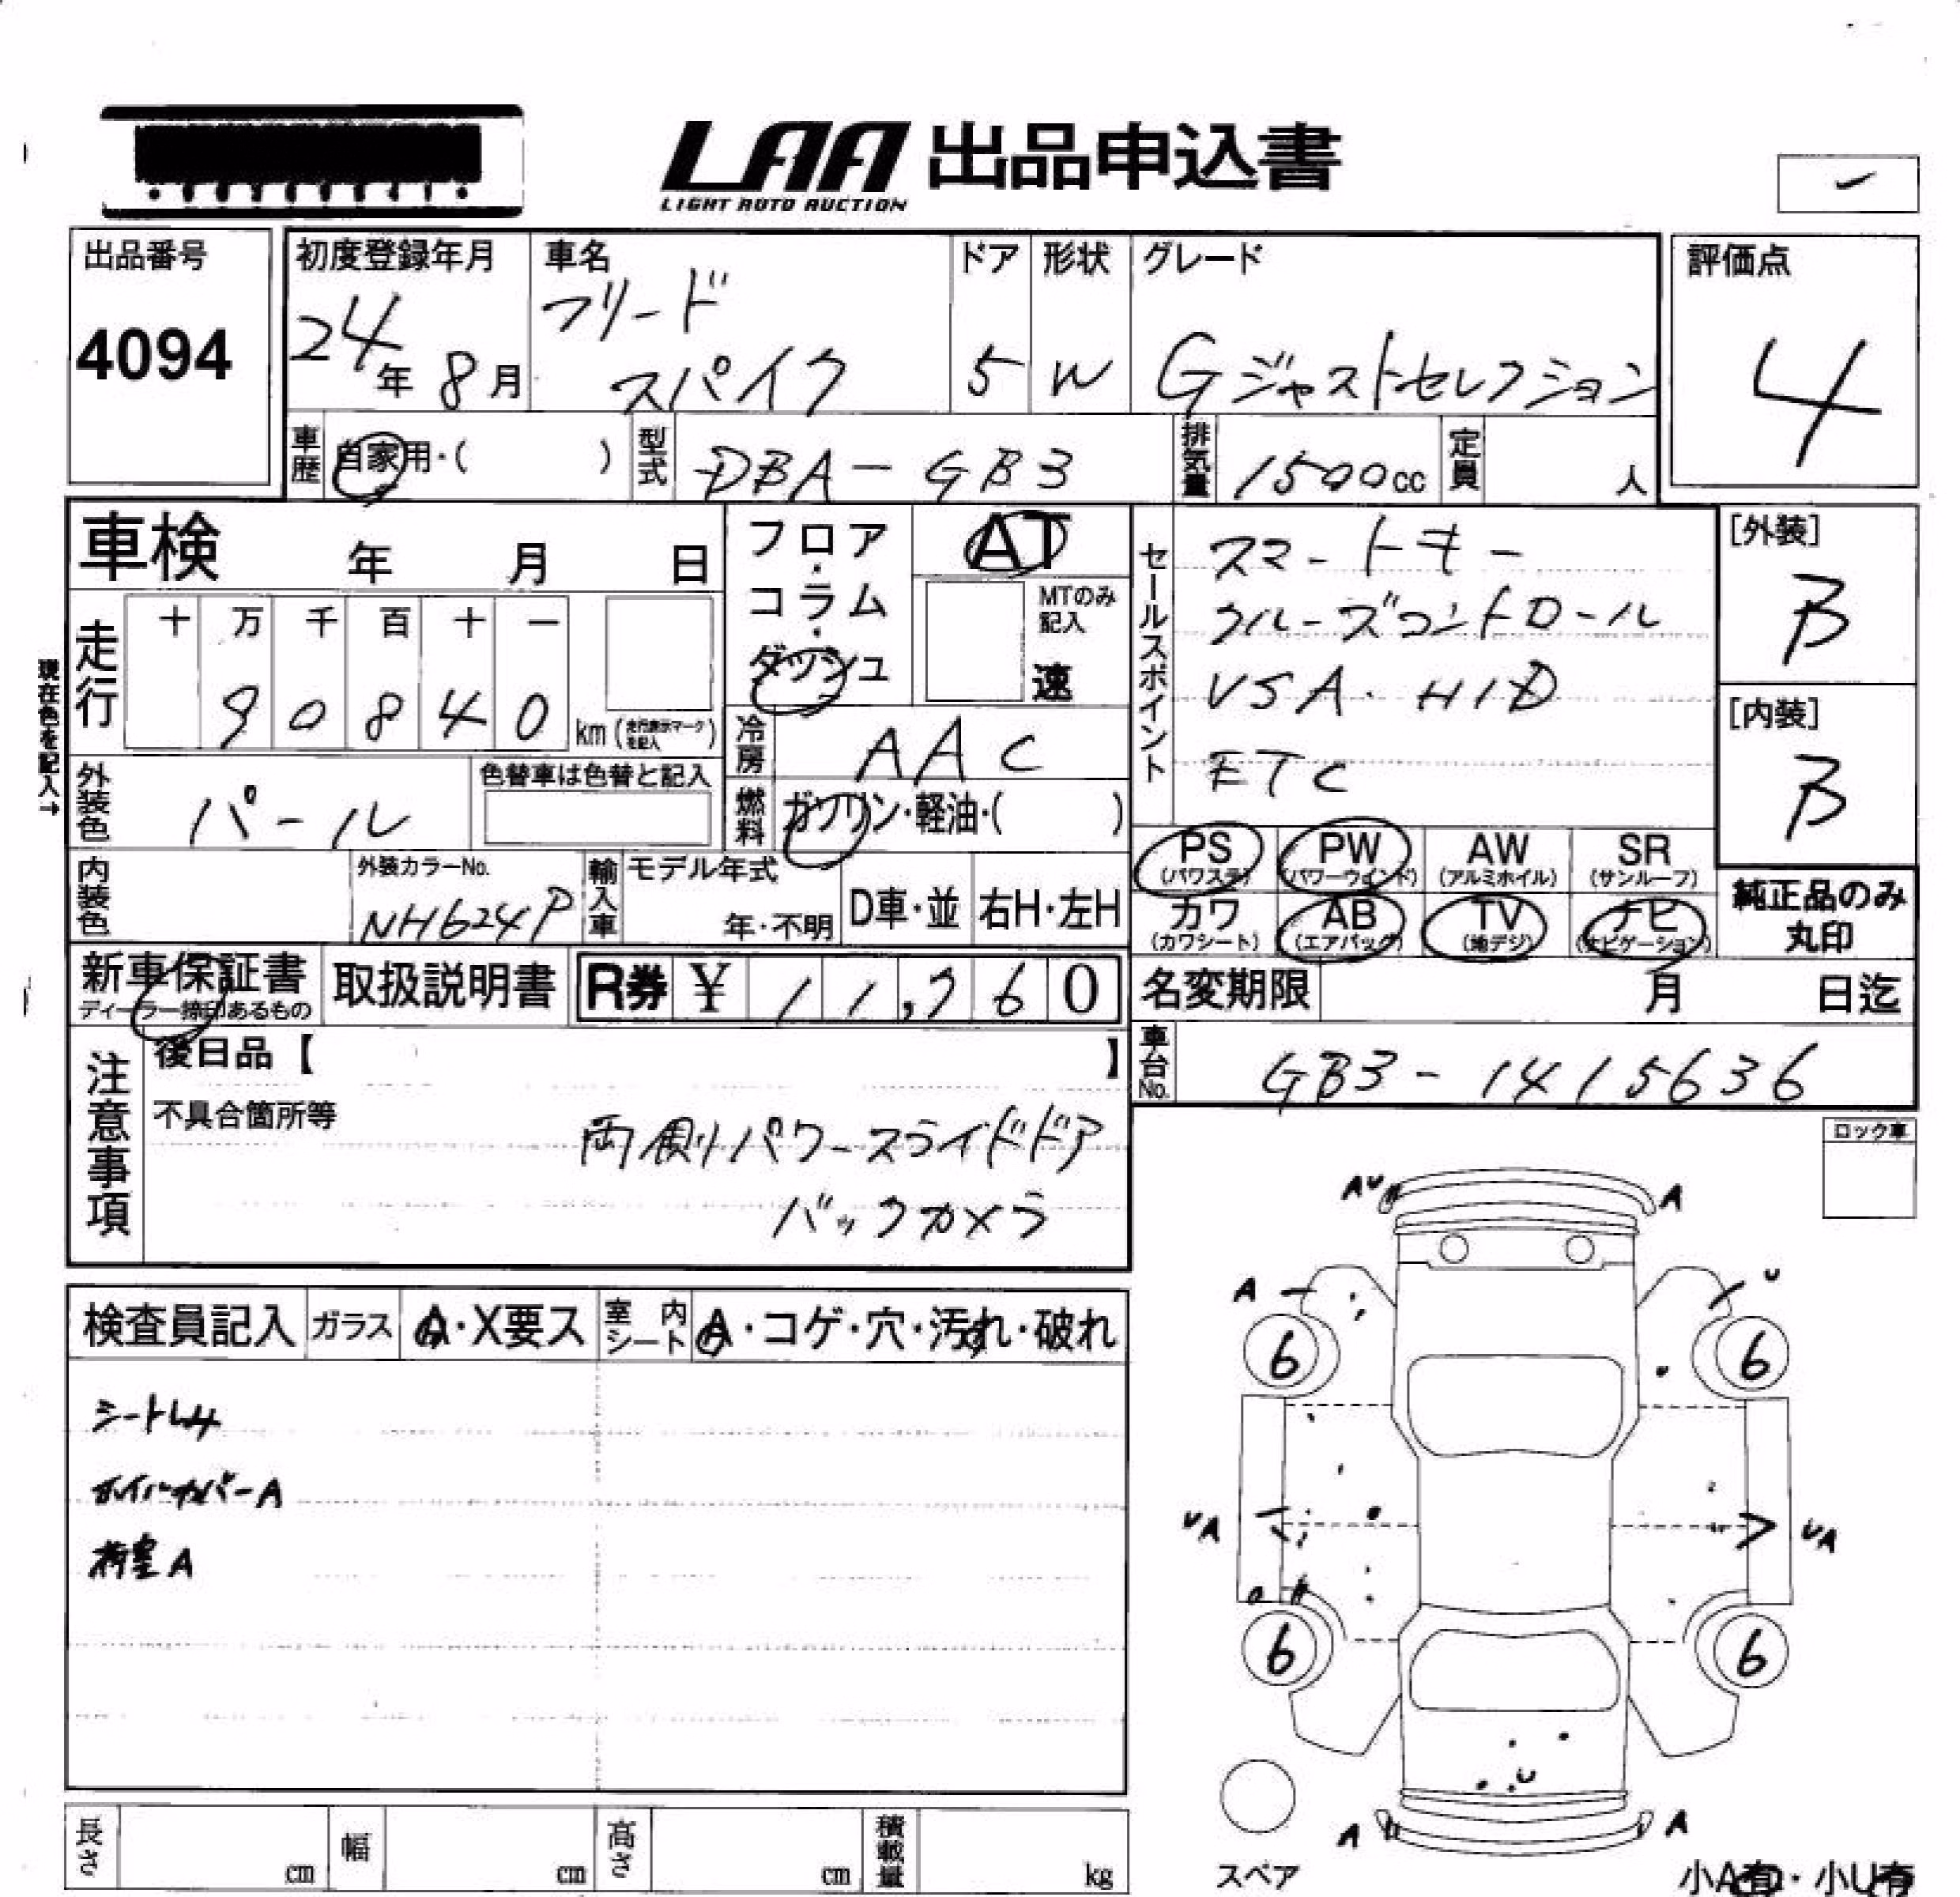 LAA 出品申込書
LIGHT AUTO AUCTION
出品番号
4094
初度登録年月
24年 8月
車名
フリード
スパイク
ドア
5
形状
W
グレード
Gジャストセレクション
評価点
4
車歴
自家用・( )
型式
DBA-GB3
排気量
1500cc
定員
人
車検 年 月 日
走行
十 万 千 百 十 一
9 0 8 4 0
km(走行表示マークを記入)
現在色を記入→
フロア・コラム・ダッシュ
AT
MTのみ記入
速
冷房
AAC
燃料
ガソリン・軽油・( )
セールスポイント
スマートキー
クルーズコントロール
VSA・HID
ETC
[外装]
B
[内装]
B
外装色
パール
色替車は色替と記入
内装色
外装カラーNo.
NH624P
輸入車
モデル年式
年・不明
D車・並
右H・左H
PS
(パワステ)
PW
(パワーウインド)
AW
(アルミホイル)
SR
(サンルーフ)
カワ
(カワシート)
AB
(エアバッグ)
TV
(地デジ)
ナビ
(ナビゲーション)
純正品のみ
丸印
新車保証書
ディーラー捺印あるもの
取扱説明書
R券 ¥ 11,760
名変期限 月 日迄
車台No.
GB3-1415636
注意事項
後日品【 】
不具合箇所等
両側パワースライドドア
バックカメラ
ロック車
検査員記入
ガラス
A・X要ス
室内シート
A・コゲ・穴・汚れ・破れ
シートシミ
ホイルカバーA
荷室A
AU
A
A
U
6
6
UA
UA
6
6
U
A
A
スペア
小A有・小U有
長さ
cm
幅
cm
高さ
cm
積載量
kg